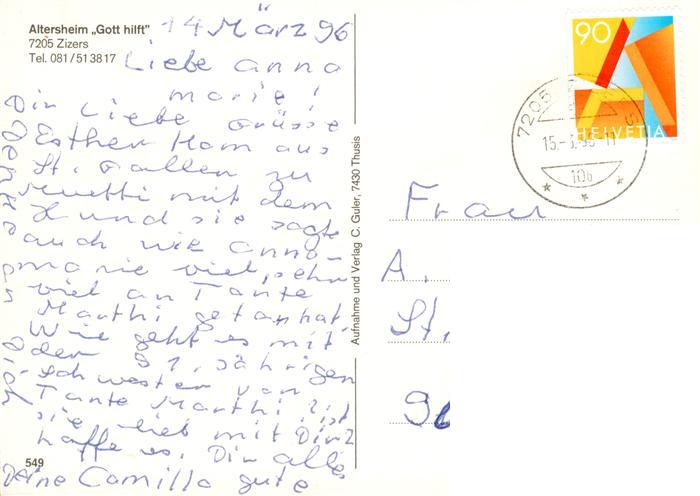 Altersheim „Gott hilft"
7205 Zizers
Tel. 081/513817
14 März 96
Liebe anna
marie!
Dir Liebe Grüsse
Esther Ham aus
St. Gallen zu
Muetti mit dem
Hund sie sagte
auch wie anna-
marie viel, sehr
viel an Tante
Marthi getanhat.
Wie geht es mit
der 91. jährigen
Schwester von
Tante Marthi? ist
sie lieb mit Dir?
hoffe es. Dir alles
Deine Camilla gute
549
Aufnahme und Verlag C. Guler, 7430 Thusis
90
HELVETIA
7205
15.-3.96-11
10b
Frau
A.
St.
90